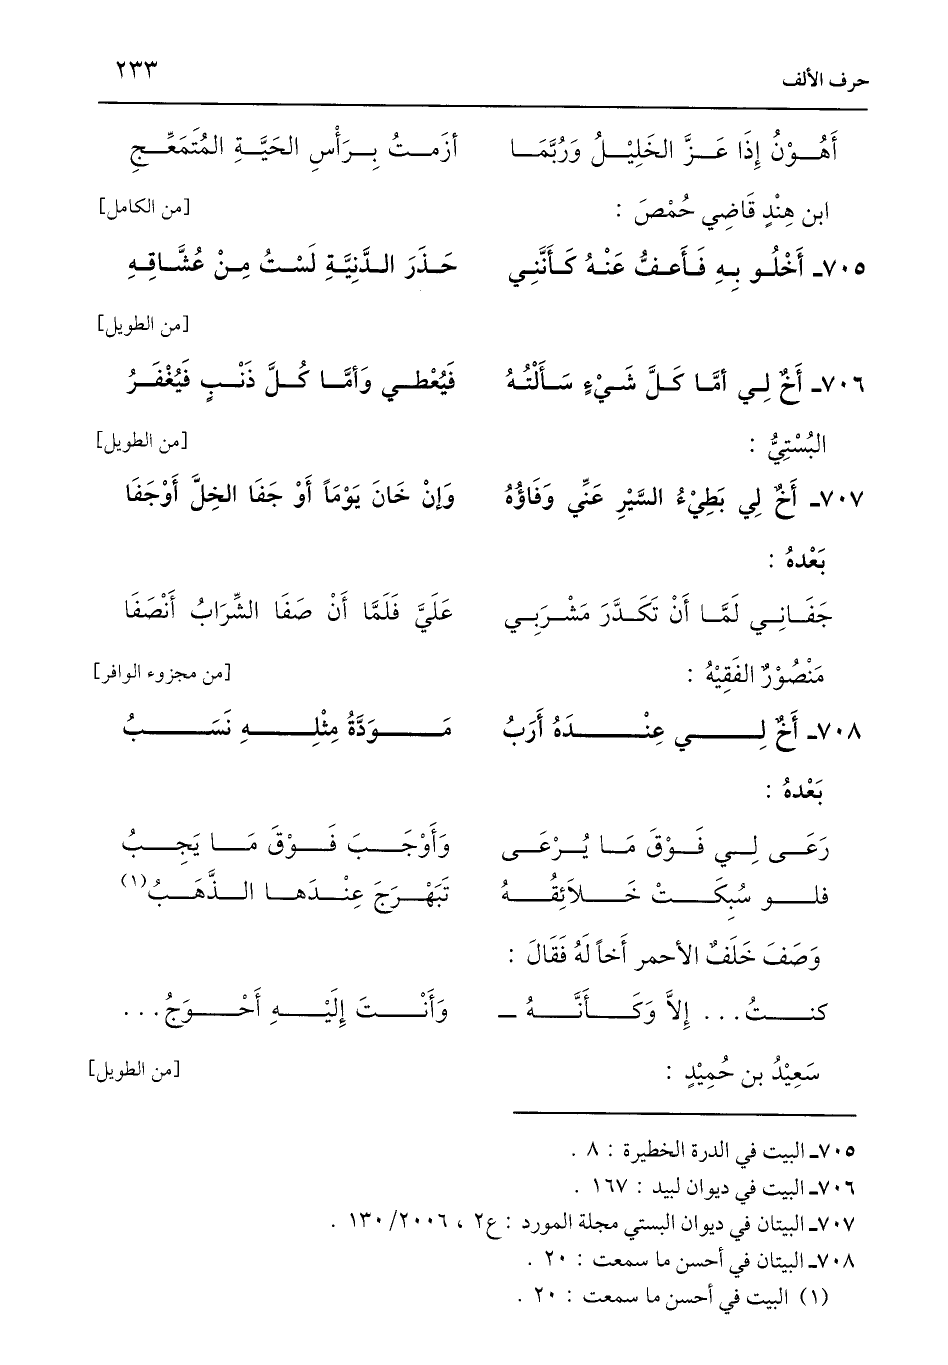 حرف الألف ٢٣٣
أَهُوْنُ إِذَا عَزَّ الخَلِيْلُ وَرُبَّمَا أزَمتُ بِرَأْسِ الحَيَّةِ المُتَمَعِّجِ
ابن هِنْدٍ قَاضِي حُمْصَ : [من الكامل]
٧٠٥ـ أَخْلُو بِهِ فَأَعفُّ عَنْهُ كَأَنَّنِي حَذَرَ الدَّنِيَّةِ لَسْتُ مِنْ عُشَّاقِهِ
[من الطويل]
٧٠٦ـ أَخٌ لِي أمَّا كَلَّ شَيْءٍ سَأَلْتُهُ فَيُعْطي وَأمَّا كُلَّ ذَنْبٍ فَيُغْفَرُ
البُسْتِيُّ : [من الطويل]
٧٠٧ـ أَخٌ لِي بَطِيْءُ السَّيْرِ عَنِّي وَفَاؤُهُ وَإنْ خَانَ يَوْمَاً أَوْ جَفَا الخِلَّ أَوْجَفَا
بَعْدهُ :
جَفَانِي لَمَّا أَنْ تَكَدَّرَ مَشْرَبِي عَلَيَّ فَلَمَّا أَنْ صَفَا الشِّرَابُ أَنْصَفَا
مَنْصُوْرٌ الفَقِيْهُ : [من مجزوء الوافر]
٧٠٨ـ أَخٌ لِي عِنْدَهُ أَرَبُ مَوَدَّةُ مِثْلِهِ نَسَبُ
بَعْدهُ :
رَعَى لِي فَوْقَ مَا يُرْعَى وَأَوْجَبَ فَوْقَ مَا يَجِبُ
فلو سُبِكَتْ خَلاَئِقُهُ تَبَهْرَجَ عِنْدَها الذَّهَبُ(١)
وَصَفَ خَلَفٌ الأحمر أَخاً لَهُ فَقَالَ :
كنتُ... إلاَّ وَكَأَنَّهُ ـ وَأَنْتَ إِلَيْهِ أَحْوَجُ...
سَعِيْدُ بن حُمِيْدٍ : [من الطويل]
٧٠٥ـ البيت في الدرة الخطيرة : ٨ .
٧٠٦ـ البيت في ديوان لبيد : ١٦٧ .
٧٠٧ـ البيتان في ديوان البستي مجلة المورد : ع٢ ، ٢٠٠٦/ ١٣٠ .
٧٠٨ـ البيتان في أحسن ما سمعت : ٢٠ .
(١) البيت في أحسن ما سمعت : ٢٠ .